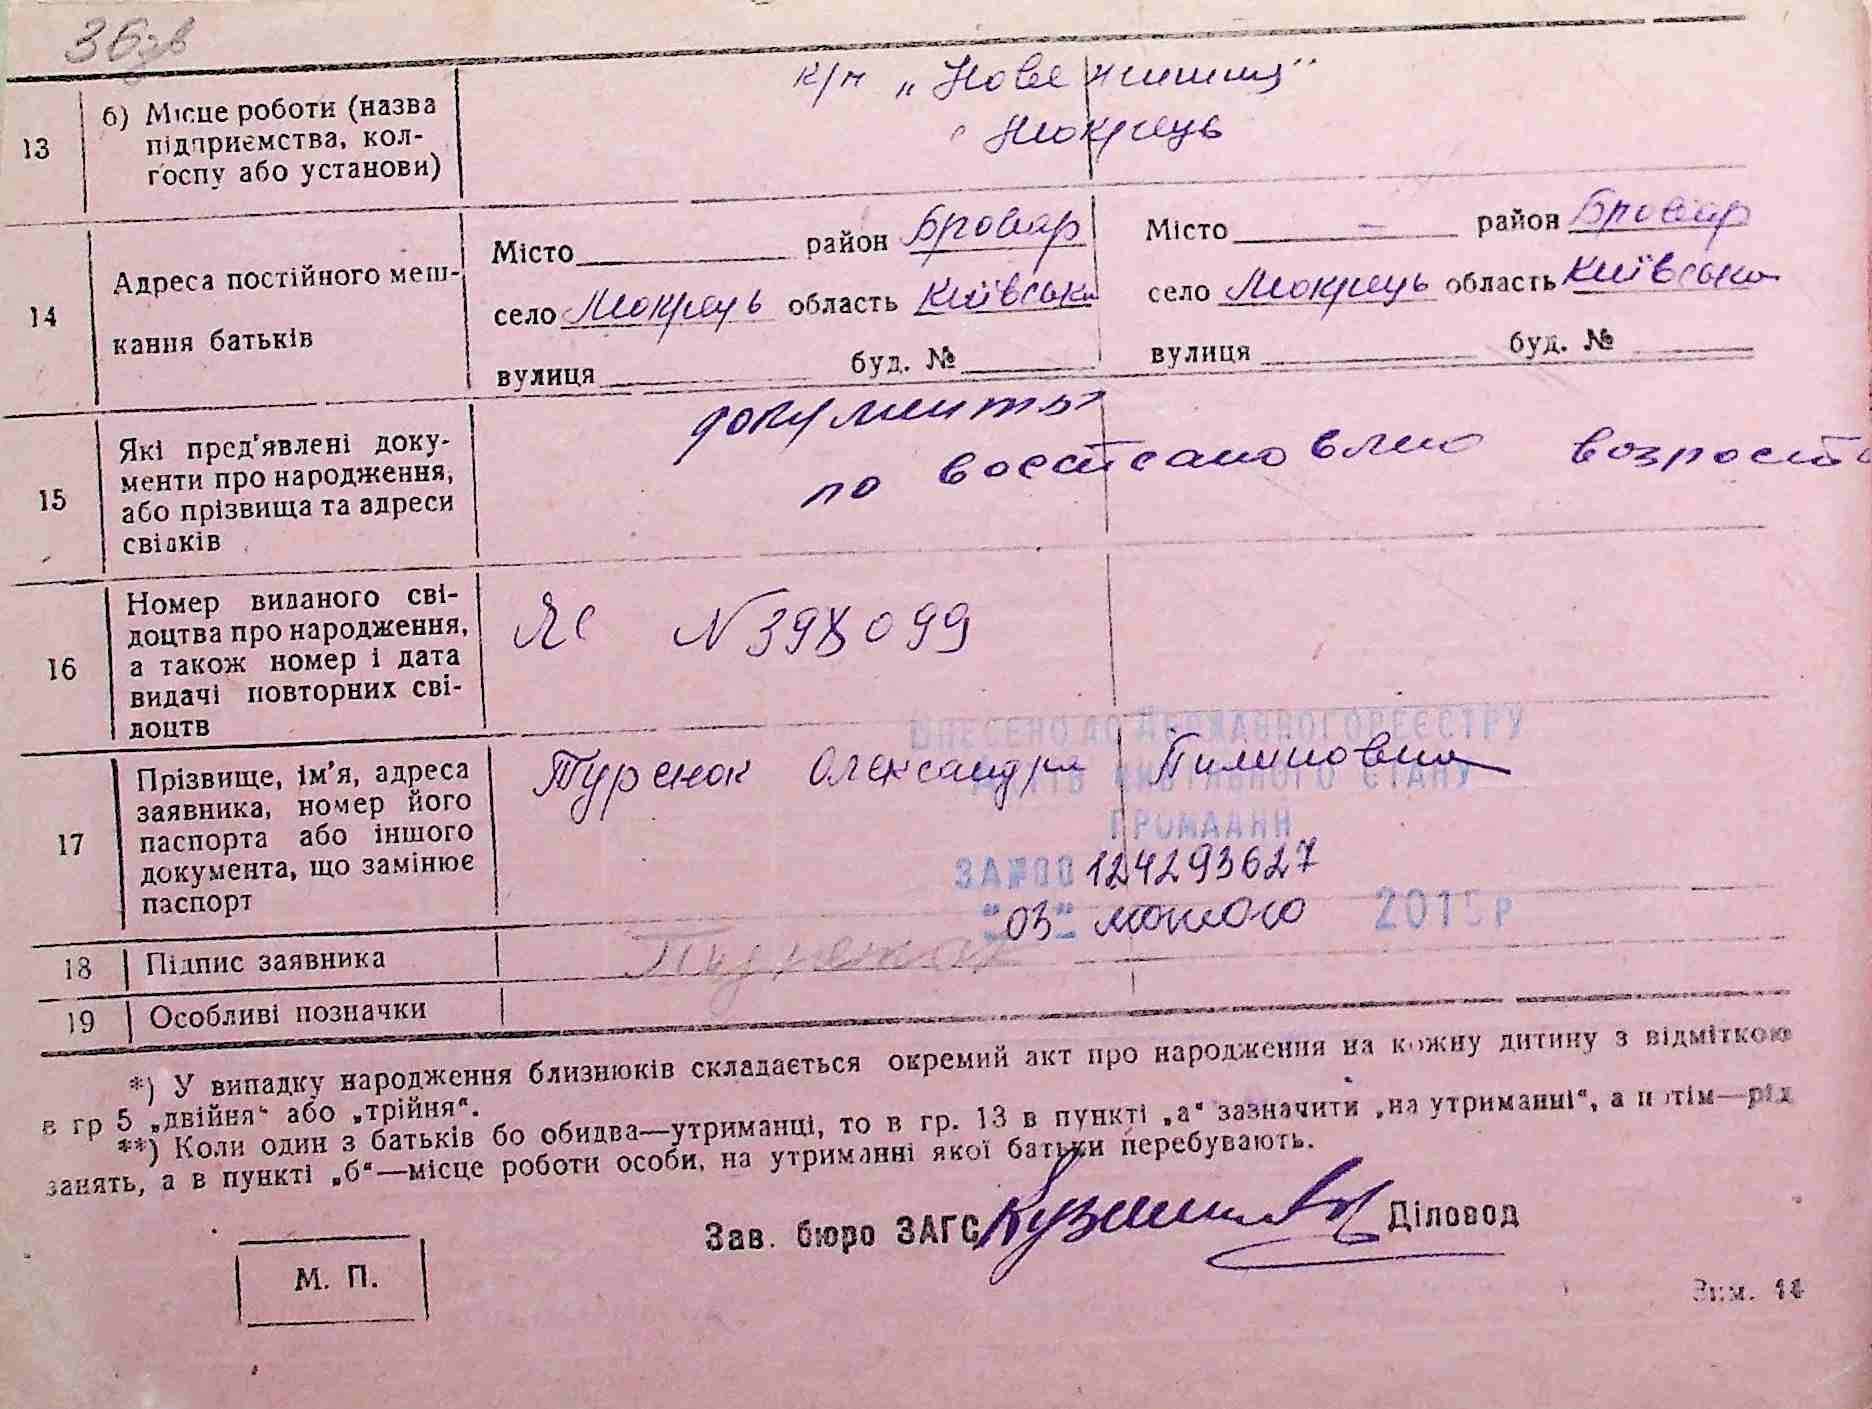 36зв
13 б) Місце роботи (назва
підприємства, кол-
госпу або установи)
к/г „Нове життя"
с Мокрець
14 Адреса постійного меш-
кання батьків
Місто район Бровар
село Мокрець область Київська
вулиця буд. №
Місто - район Бровар
село Мокрець область Київська
вулиця буд. №
15 Які пред'явлені доку-
менти про народження,
або прізвища та адреси
свідків
документы
по восстановлен возраста
16 Номер виданого сві-
доцтва про народження,
а також номер і дата
видачі повторних сві-
доцтв
ЯС N 398099
17 Прізвище, ім'я, адреса
заявника, номер його
паспорта або іншого
документа, що замінює
паспорт
Туренок Олександра Пилиповна
ВНЕСЕНО ДО ДЕРЖАВНОГО РЕЄСТРУ
АКТІВ ЦИВІЛЬНОГО СТАНУ
ГРОМАДЯН
ЗА №00124293627
"03" лютого 2015р
18 Підпис заявника Туренок
19 Особливі позначки
*) У випадку народження близнюків складається окремий акт про народження на кожну дитину з відміткою
в гр 5 „двійня" або „трійня".
**) Коли один з батьків бо обидва—утриманці, то в гр. 13 в пункті „а" зазначити „на утриманні", а потім—рід
занять, а в пункті „б"—місце роботи особи, на утриманні якої батьки перебувають.
Зав. бюро ЗАГС Діловод
М. П.
Зим. 44